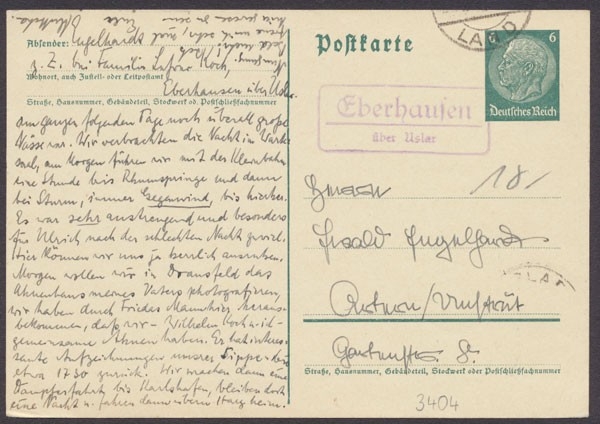 Absender: Engelhardt
z. Z. bei Familie Koch,
Wohnort, auch Zustell- oder Leitpostamt
Eberhausen über Uslar
Straße, Hausnummer, Gebäudeteil, Stockwerk od. Postschließfachnummer
am ganzen folgenden Tage noch überall große
Nässe war. Wir verbrachten die Nacht in
am Morgen fuhren wir mit der Kleinbahn
eine Stunde bis Rhumspringe und dann
bei Sturm, immer Gegenwind, bis hierher.
Es war sehr anstrengend und besonders
für Ulrich nach der schlechten Nacht zuviel.
Hier können wir uns ja herrlich ausruhen.
Morgen wollen wir in Dransfeld das
Ahnenhaus meines Vaters photografieren,
wir haben durch Friedel heraus-
bekommen, daß wir - Wilhelm Koch u. ich -
gemeinsame Ahnen haben. Er hat interes-
sante Aufzeichnungen unserer Sippe - bis
etwa 1730 zurück. Wir machen dann eine
Dampferfahrt bis Karlshafen, bleiben dort
eine Nacht u. fahren dann übern Harz heim.
Postkarte
6 6
Deutsches Reich
LAND
Eberhausen
über Uslar
18/
Ewald Engelhardt
Artern/Unstrut
Straße, Hausnummer, Gebäudeteil, Stockwerk oder Postschließfachnummer
3404